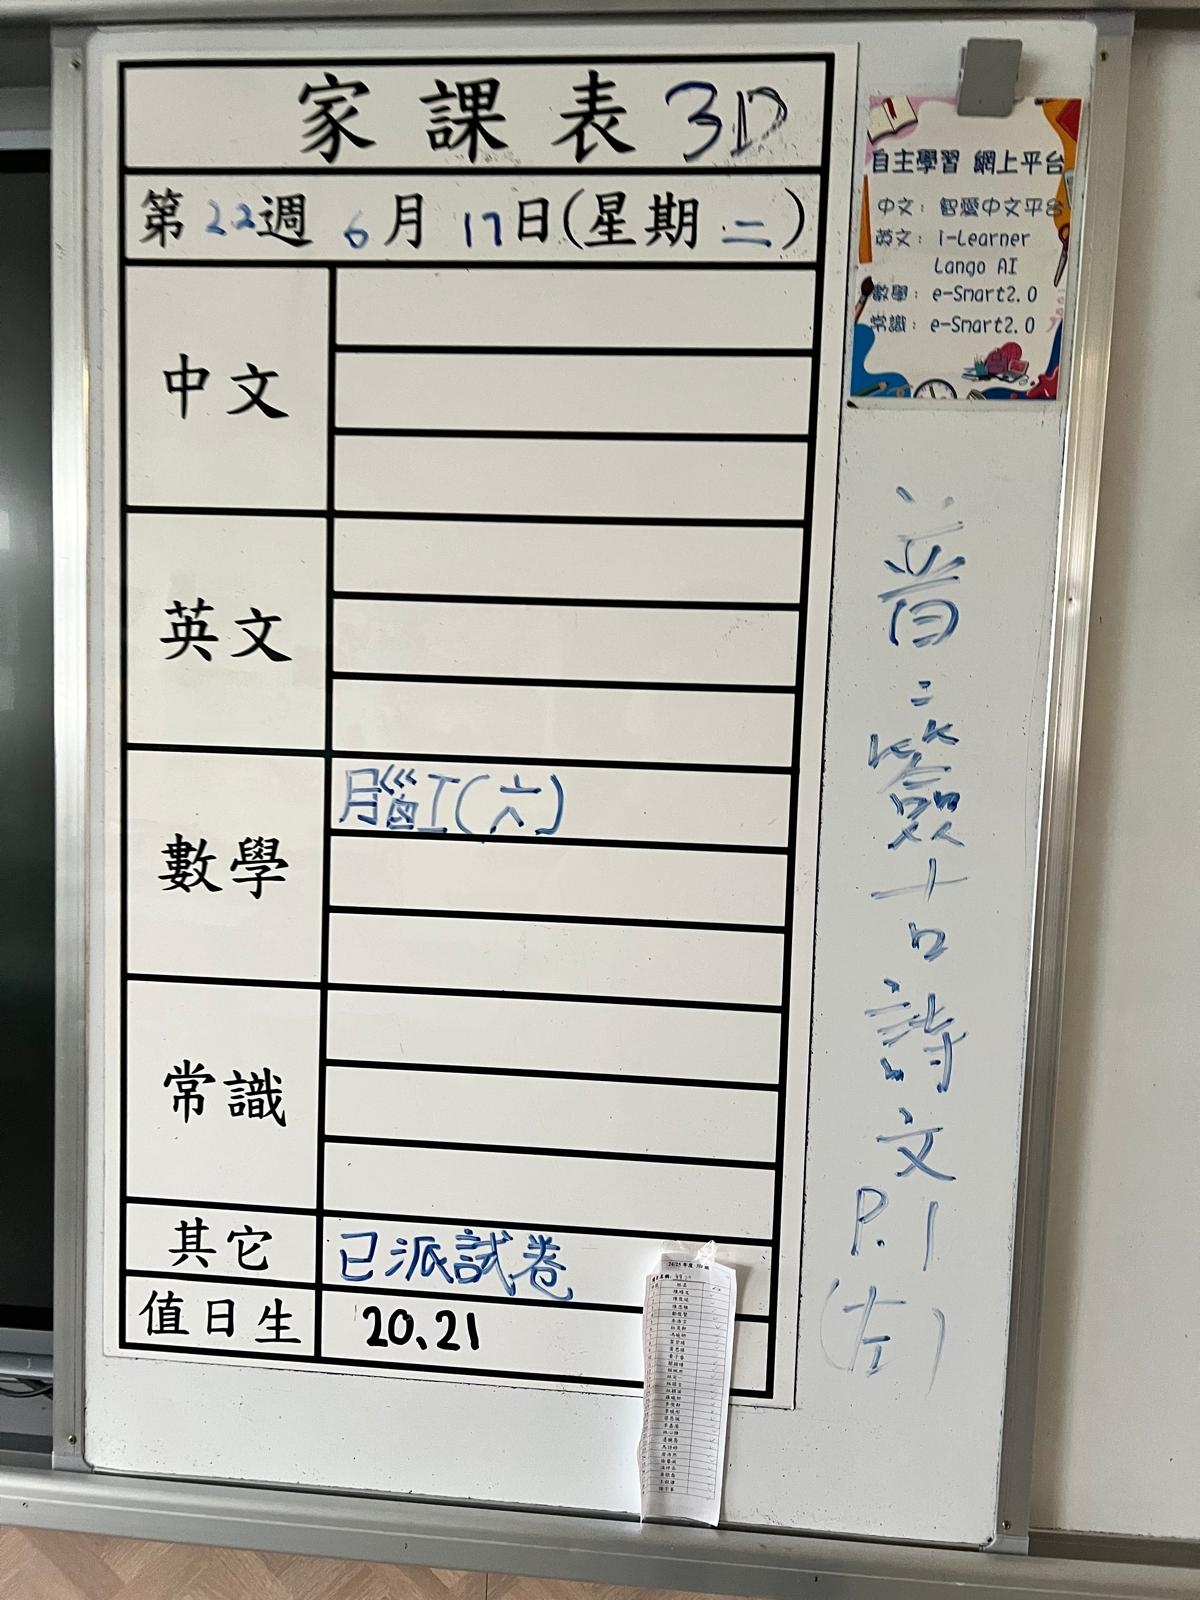 家課表 3D
第22週 6月17日(星期二)
中文
英文
數學
腦工(六)
常識
其它
已派試卷
值日生
20.21
自主學習 網上平台
中文：智愛中文平台
英文：i-Learner
Lango AI
數學：e-Smart2.0
常識：e-Smart2.0
普:簽古詩文P.1(左)